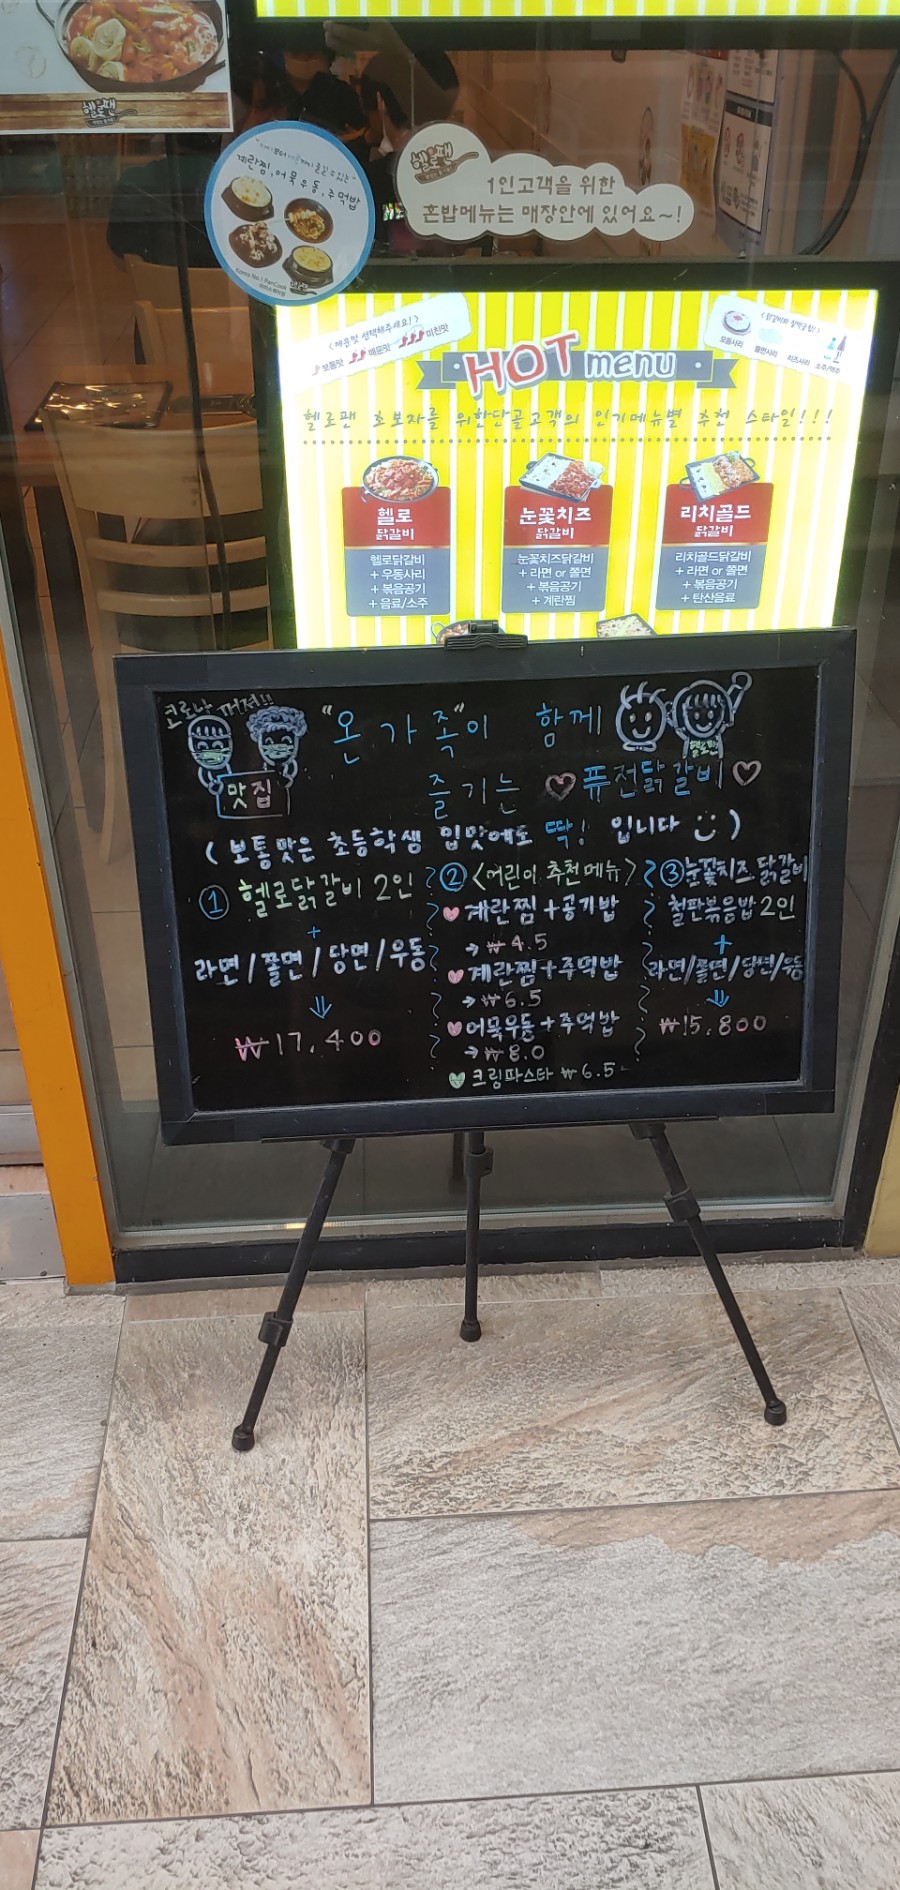 헬로팬
계란찜, 어묵우동, 주먹밥
Korea No.1 PanCook
헬로팬
1인고객을 위한
혼밥메뉴는 매장안에 있어요~!
<매운맛 선택해주세요!>
보통맛 매운맛 미친맛
모듬사리 쫄면사리 치즈사리 소주/맥주
HOT menu
헬로팬 초보자를 위한단골고객의 인기메뉴별 추천 스타일!!!
헬로
닭갈비
헬로닭갈비
+ 우동사리
+ 볶음공기
+ 음료/소주
눈꽃치즈
닭갈비
눈꽃치즈닭갈비
+ 라면 or 쫄면
+ 볶음공기
+ 계란찜
리치골드
닭갈비
리치골드닭갈비
+ 라면 or 쫄면
+ 볶음공기
+ 탄산음료
코로나 꺼져!!
맛집
"온가족"이 함께
헬로팬
즐기는 ♡퓨전닭갈비♡
(보통맛은 초등학생 입맛에도 딱! 입니다 )
① 헬로닭갈비 2인
+
라면/쫄면/당면/우동
₩17,400
② <어린이 추천메뉴>
계란찜+공기밥
→ ₩4.5
계란찜+주먹밥
→ ₩6.5
어묵우동+주먹밥
→ ₩8.0
크림파스타 ₩6.5
③ 눈꽃치즈 닭갈비
철판볶음밥 2인
+
라면/쫄면/당면/우동
₩15,800